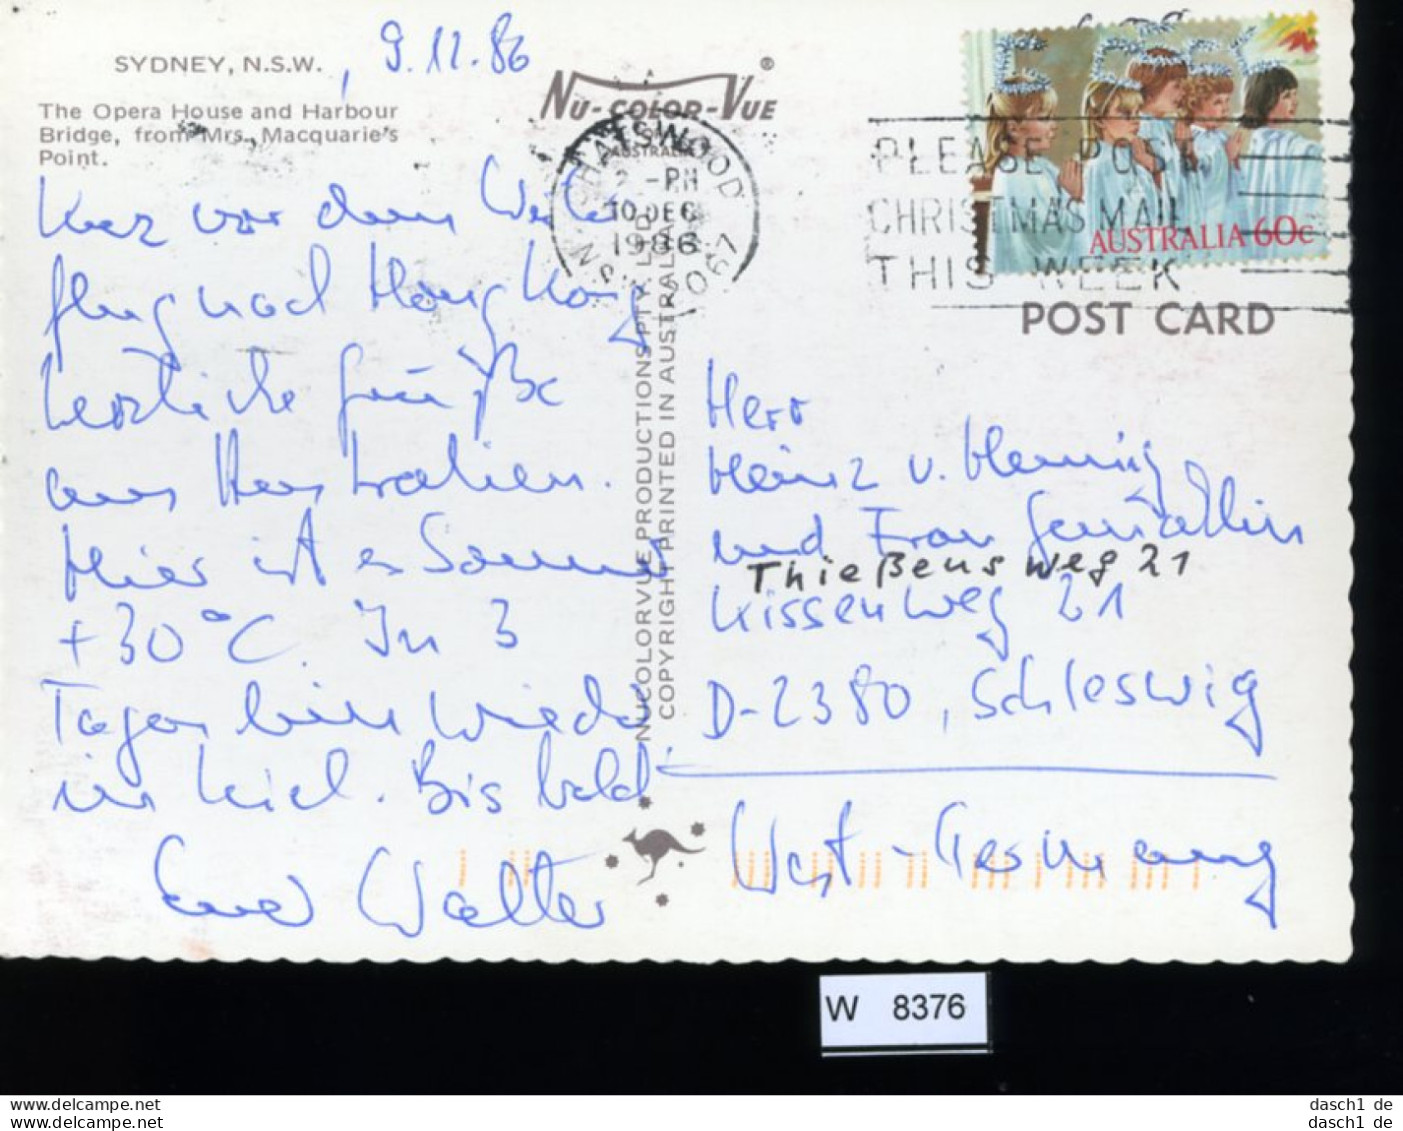 SYDNEY, N.S.W. , 9.12.86
The Opera House and Harbour
Bridge, from Mrs. Macquarie's
Point.
NU-COLOR-VUE ®
AUSTRALIA
CHATSWOOD
2 -PM
10 DEC
1986
N.S.W. 2067
PLEASE POST
CHRISTMAS MAIL
THIS WEEK
AUSTRALIA 60c
POST CARD
Kurz vor dem Weiter
flug nach Hong Kong
herzliche Grüße
aus Australien.
Hier ist es Sommer
+30°C. In 3
Tagen bin wieder
in Kiel. Bis bald
Euer Walter
NUCOLORVUE PRODUCTIONS PTY. LTD.
COPYRIGHT PRINTED IN AUSTRALIA
Herr
Heinz v. Hennig
und Frau Gemahlin
Thießens weg 21
Kissenweg 21
D-2380, Schleswig
West-Germany
W 8376
dasch1_de
www.delcampe.net
dasch1_de
www.delcampe.net
dasch1_de